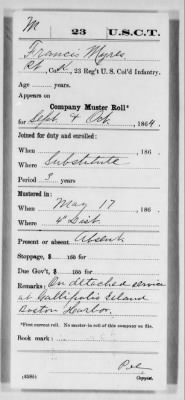 M 23 U.S.C.T.
Francis Myres
Co. K, 23 Reg't U. S. Col'd Infantry.
Age ...... years.
Appears on
Company Muster Roll*
for Sept & Oct, 1864.
Joined for duty and enrolled:
When ......, 186 .
Where Substitute
Period 3 years
Mustered in:
When May 17, 186
Where 4" Dist.
Present or absent, Absent
Stoppage, $ ...... 100 for
Due Gov't, $ ...... 100 for
Remarks: On detached service
at Gallipolis Island
Boston Harbor.
*First current roll. No muster-in roll of this company on file.
Book mark:
(358b) Copyist.